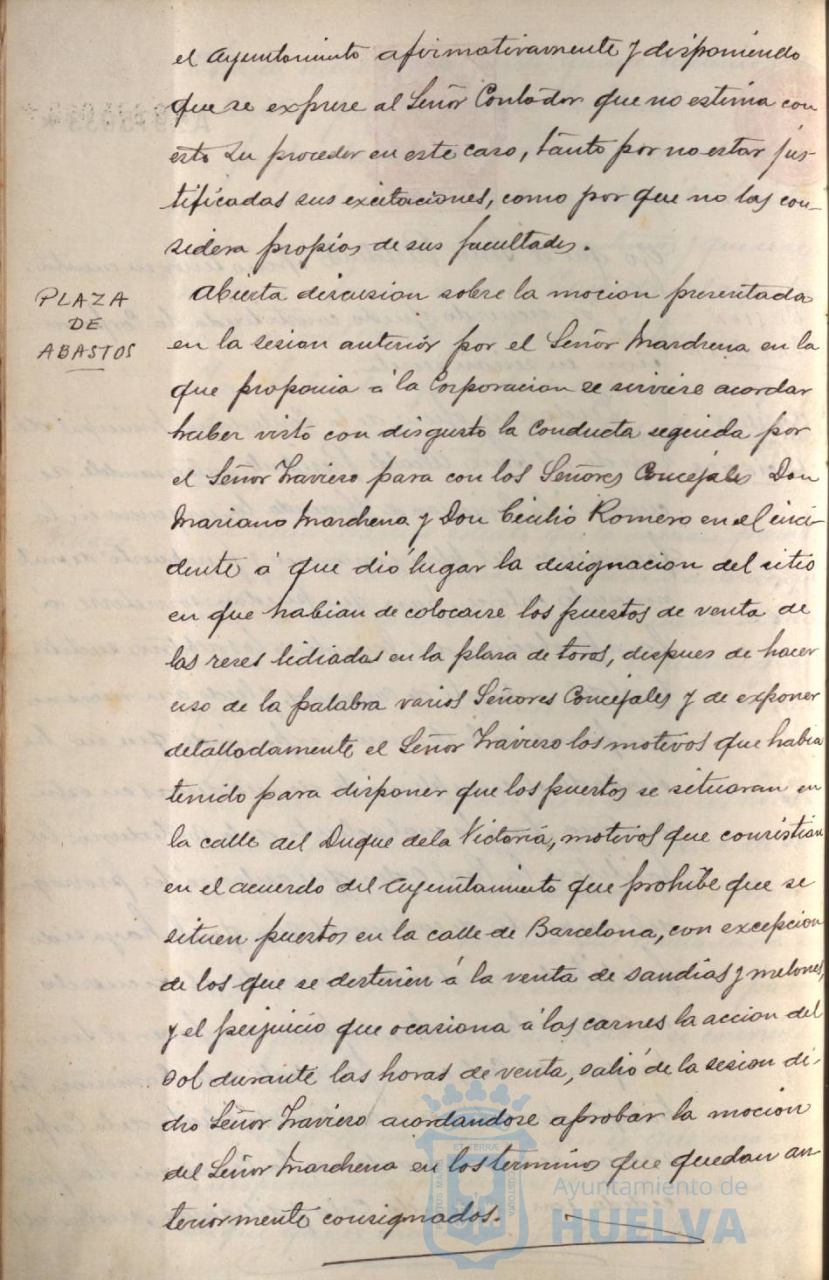 el Ayuntamiento afirmativamente y disponiendo
que se exprese al Señor Contador que no estima con
esto su proceder en este caso, tanto por no estar jus-
tificadas sus excitaciones, como por que no las con-
sidera propias de sus facultades.
PLAZA
DE
ABASTOS
Abierta discusion sobre la mocion presentada
en la sesion anterior por el Señor Marchena en la
que proponia á la Corporacion se sirviese acordar
haber visto con disgusto la conducta seguida por
el Señor Travieso para con los Señores Concejales Don
Mariano Marchena y Don Cecilio Romero en el inci-
dente á que dió lugar la designacion del sitio
en que habian de colocarse los puestos de venta de
las reses lidiadas en la plaza de toros, despues de hacer
uso de la palabra varios Señores Concejales y de exponer
detalladamente el Señor Travieso los motivos que habia
tenido para disponer que los puestos se situaran en
la calle del Duque de la Victoria, motivos que consistian
en el acuerdo del Ayuntamiento que prohibe que se
situen puestos en la calle de Barcelona, con excepcion
de los que se destinen á la venta de sandias y melones,
y el perjuicio que ocasiona á las carnes la accion del
sol durante las horas de venta, salió de la sesion di-
cho Señor Travieso acordandose aprobar la mocion
del Señor Marchena en los terminos que quedan an
teriormente consignados.
Ayuntamiento de
HUELVA